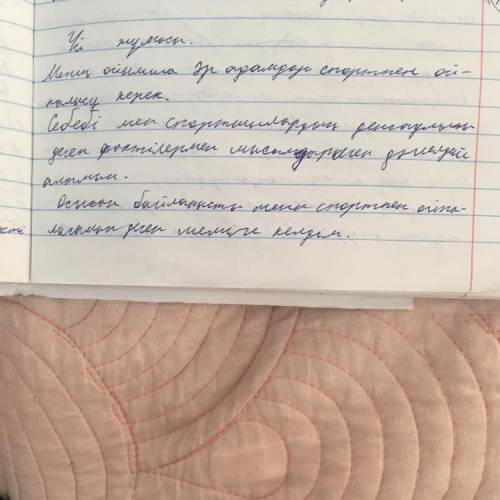 Үй жұмысы.
Менің ойымша әр адамдар спортпен ай-
налысу керек.
Себебі мен спортшылардың денсаулығы
деген фактілермен мысалдармен дәлелдей
аламын.
Осыған байланысты мен спортпен айна-
лысамын деген шешімге келдім.